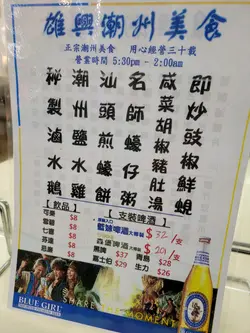 雄興潮州美食
正宗潮州美食 用心經營三十載
營業時間 5:30pm - 2:00am
秘製滷水鵝
潮州鹽水雞
汕頭蠔餅
名師蠔仔粥
咸菜胡椒豬肚湯
即炒豉椒鮮蜆
【飲品】
可樂 $8
雪碧 $8
七喜 $8
芬達 $8
忌廉 $8
【支裝啤酒】
藍妹啤酒大樽裝 $32/支
啤酒大樽裝 $29/支
黑獅 $37
青島 $28
富士伯 $29
生力 $26
BLUE GIRL
SHARE MOMENT